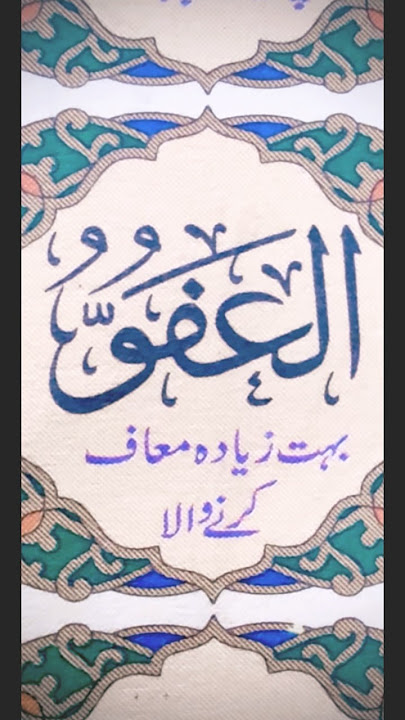 العَفُوُّ
بہت زیادہ معاف
کرنے والا